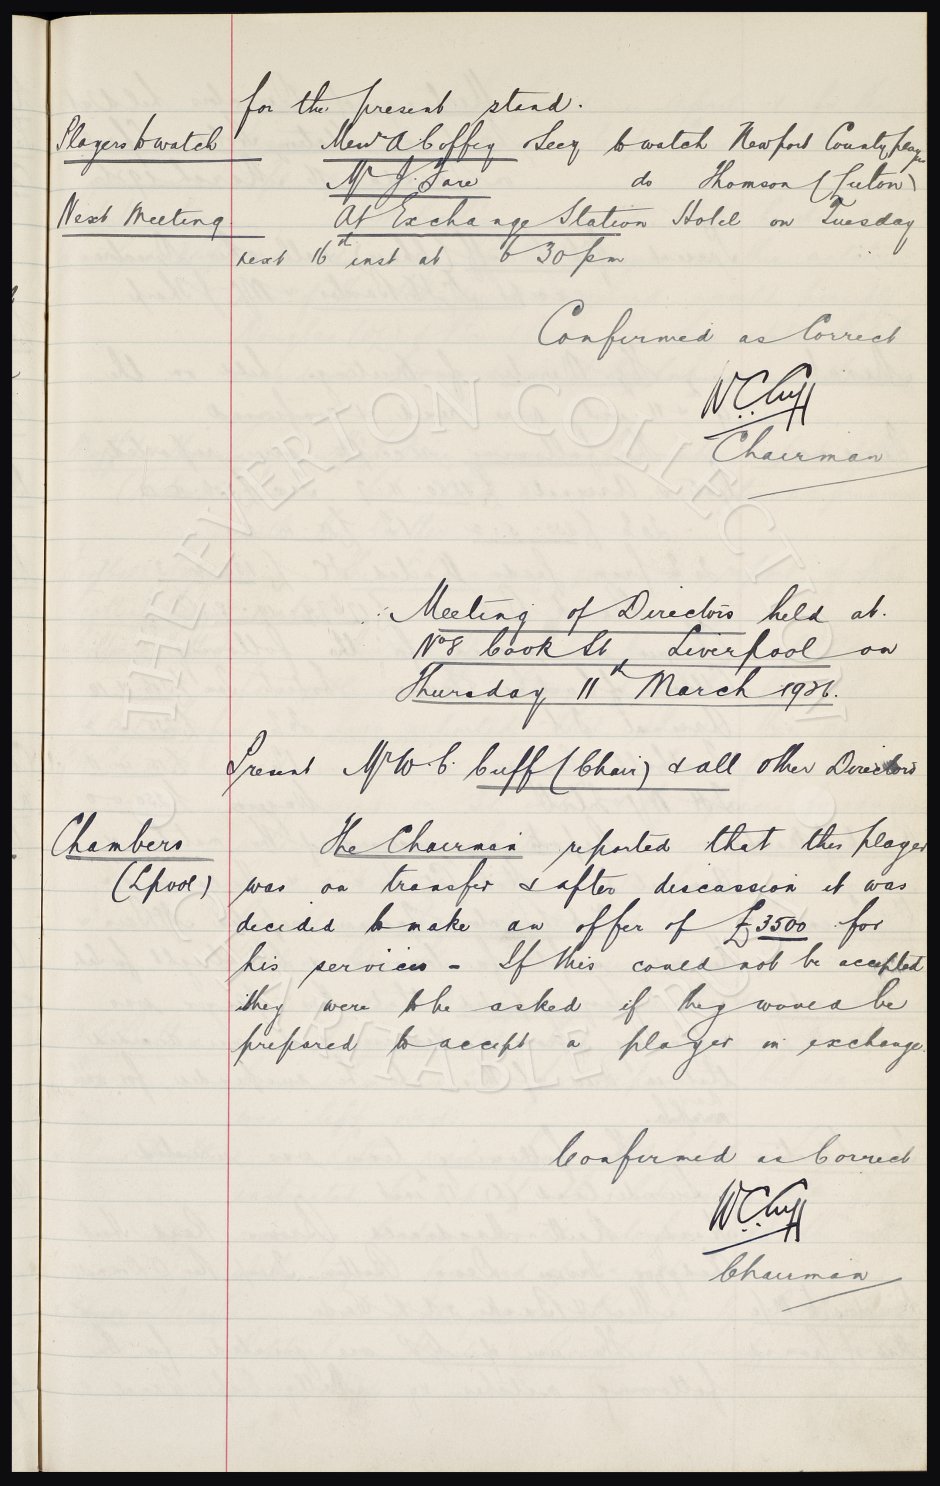 for the present stand.
Players to watch Messrs A Coffey & Secy to watch Newport County player
Mr J. Sare do Thomson (Luton)
Next Meeting At Exchange Station Hotel on Tuesday
next 16th inst at 6 30 pm
Confirmed as Correct
W C Cuff
Chairman
Meeting of Directors held at
No 8 Cook St, Liverpool on
Thursday 11th March 1926.
Present Mr W. C. Cuff (Chair) & all other Directors
Chambers The Chairman reported that this player
(Lpool) was on transfer & after discussion it was
decided to make an offer of £3500 for
his services - If this could not be accepted
they were to be asked if they would be
prepared to accept a player in exchange.
Confirmed as Correct
W C Cuff
Chairman
THE EVERTON COLLECTION CHARITABLE TRUST